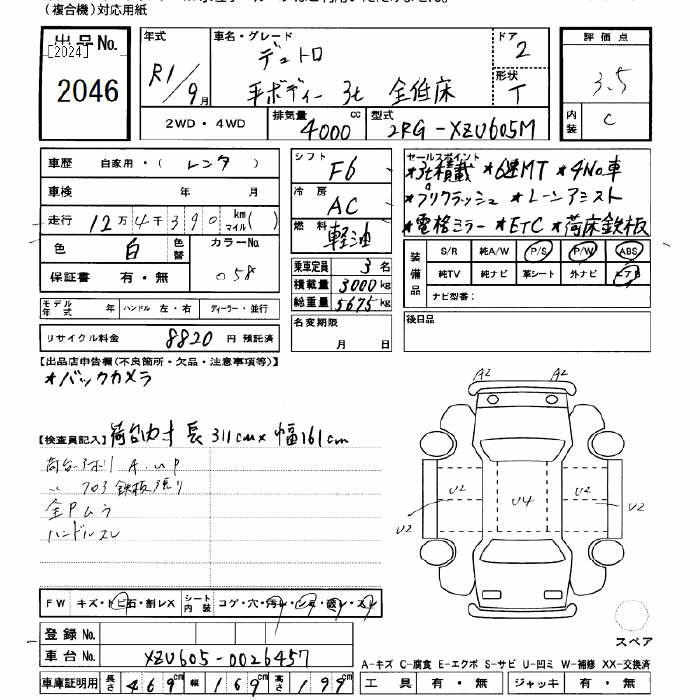 (複合機)対応用紙
出品No.
[2024]
2046
年式
R1/9月
車名・グレード
デュトロ
平ボディー 3t 全低床
ドア
2
形状
T
評価点
3.5
内装
C
2WD・4WD
排気量
4000cc
型式
2RG-XZU605M
車歴 自家用・(レンタ)
車検 年 月
走行 12万4千390km マイル( )
色 白 色替
カラーNo.
058
保証書 有・無
モデル年式 年 ハンドル 左・右 ディーラー・並行
リサイクル料金 8820円 預託済
シフト F6
冷房 AC
燃料 軽油
乗車定員 3名
積載量 3000kg
総重量 5675kg
名変期限
月 日
セールスポイント
*3t積載 *6速MT *4No車
*プリクラッシュ *レーンアシスト
*電格ミラー *ETC *荷床鉄板
装備品
S/R 純A/W P/S P/W ABS
純TV 純ナビ 革シート 外ナビ エアB
ナビ型番:
後日品
【出品店申告欄(不良箇所・欠品・注意事項等)】
*バックカメラ
【検査員記入】荷台内寸 長311cm×幅161cm
荷台アオリ A.U P
〃 フロア鉄板張り
全Pムラ
ハンドルスレ
FW キズ・トビ石・割レX シート内装 コゲ・穴・汚レ・シミ・破レ・スレ
登録No.
車台No. XZU605-0026457
車庫証明用 長さ 469cm 幅 169cm 高さ 199cm
A2 A2
U2 U2 U4 U2 U2
スペア
A-キズ C-腐食 E-エクボ S-サビ U-凹ミ W-補修 XX-交換済
工具 有・無 ジャッキ 有・無